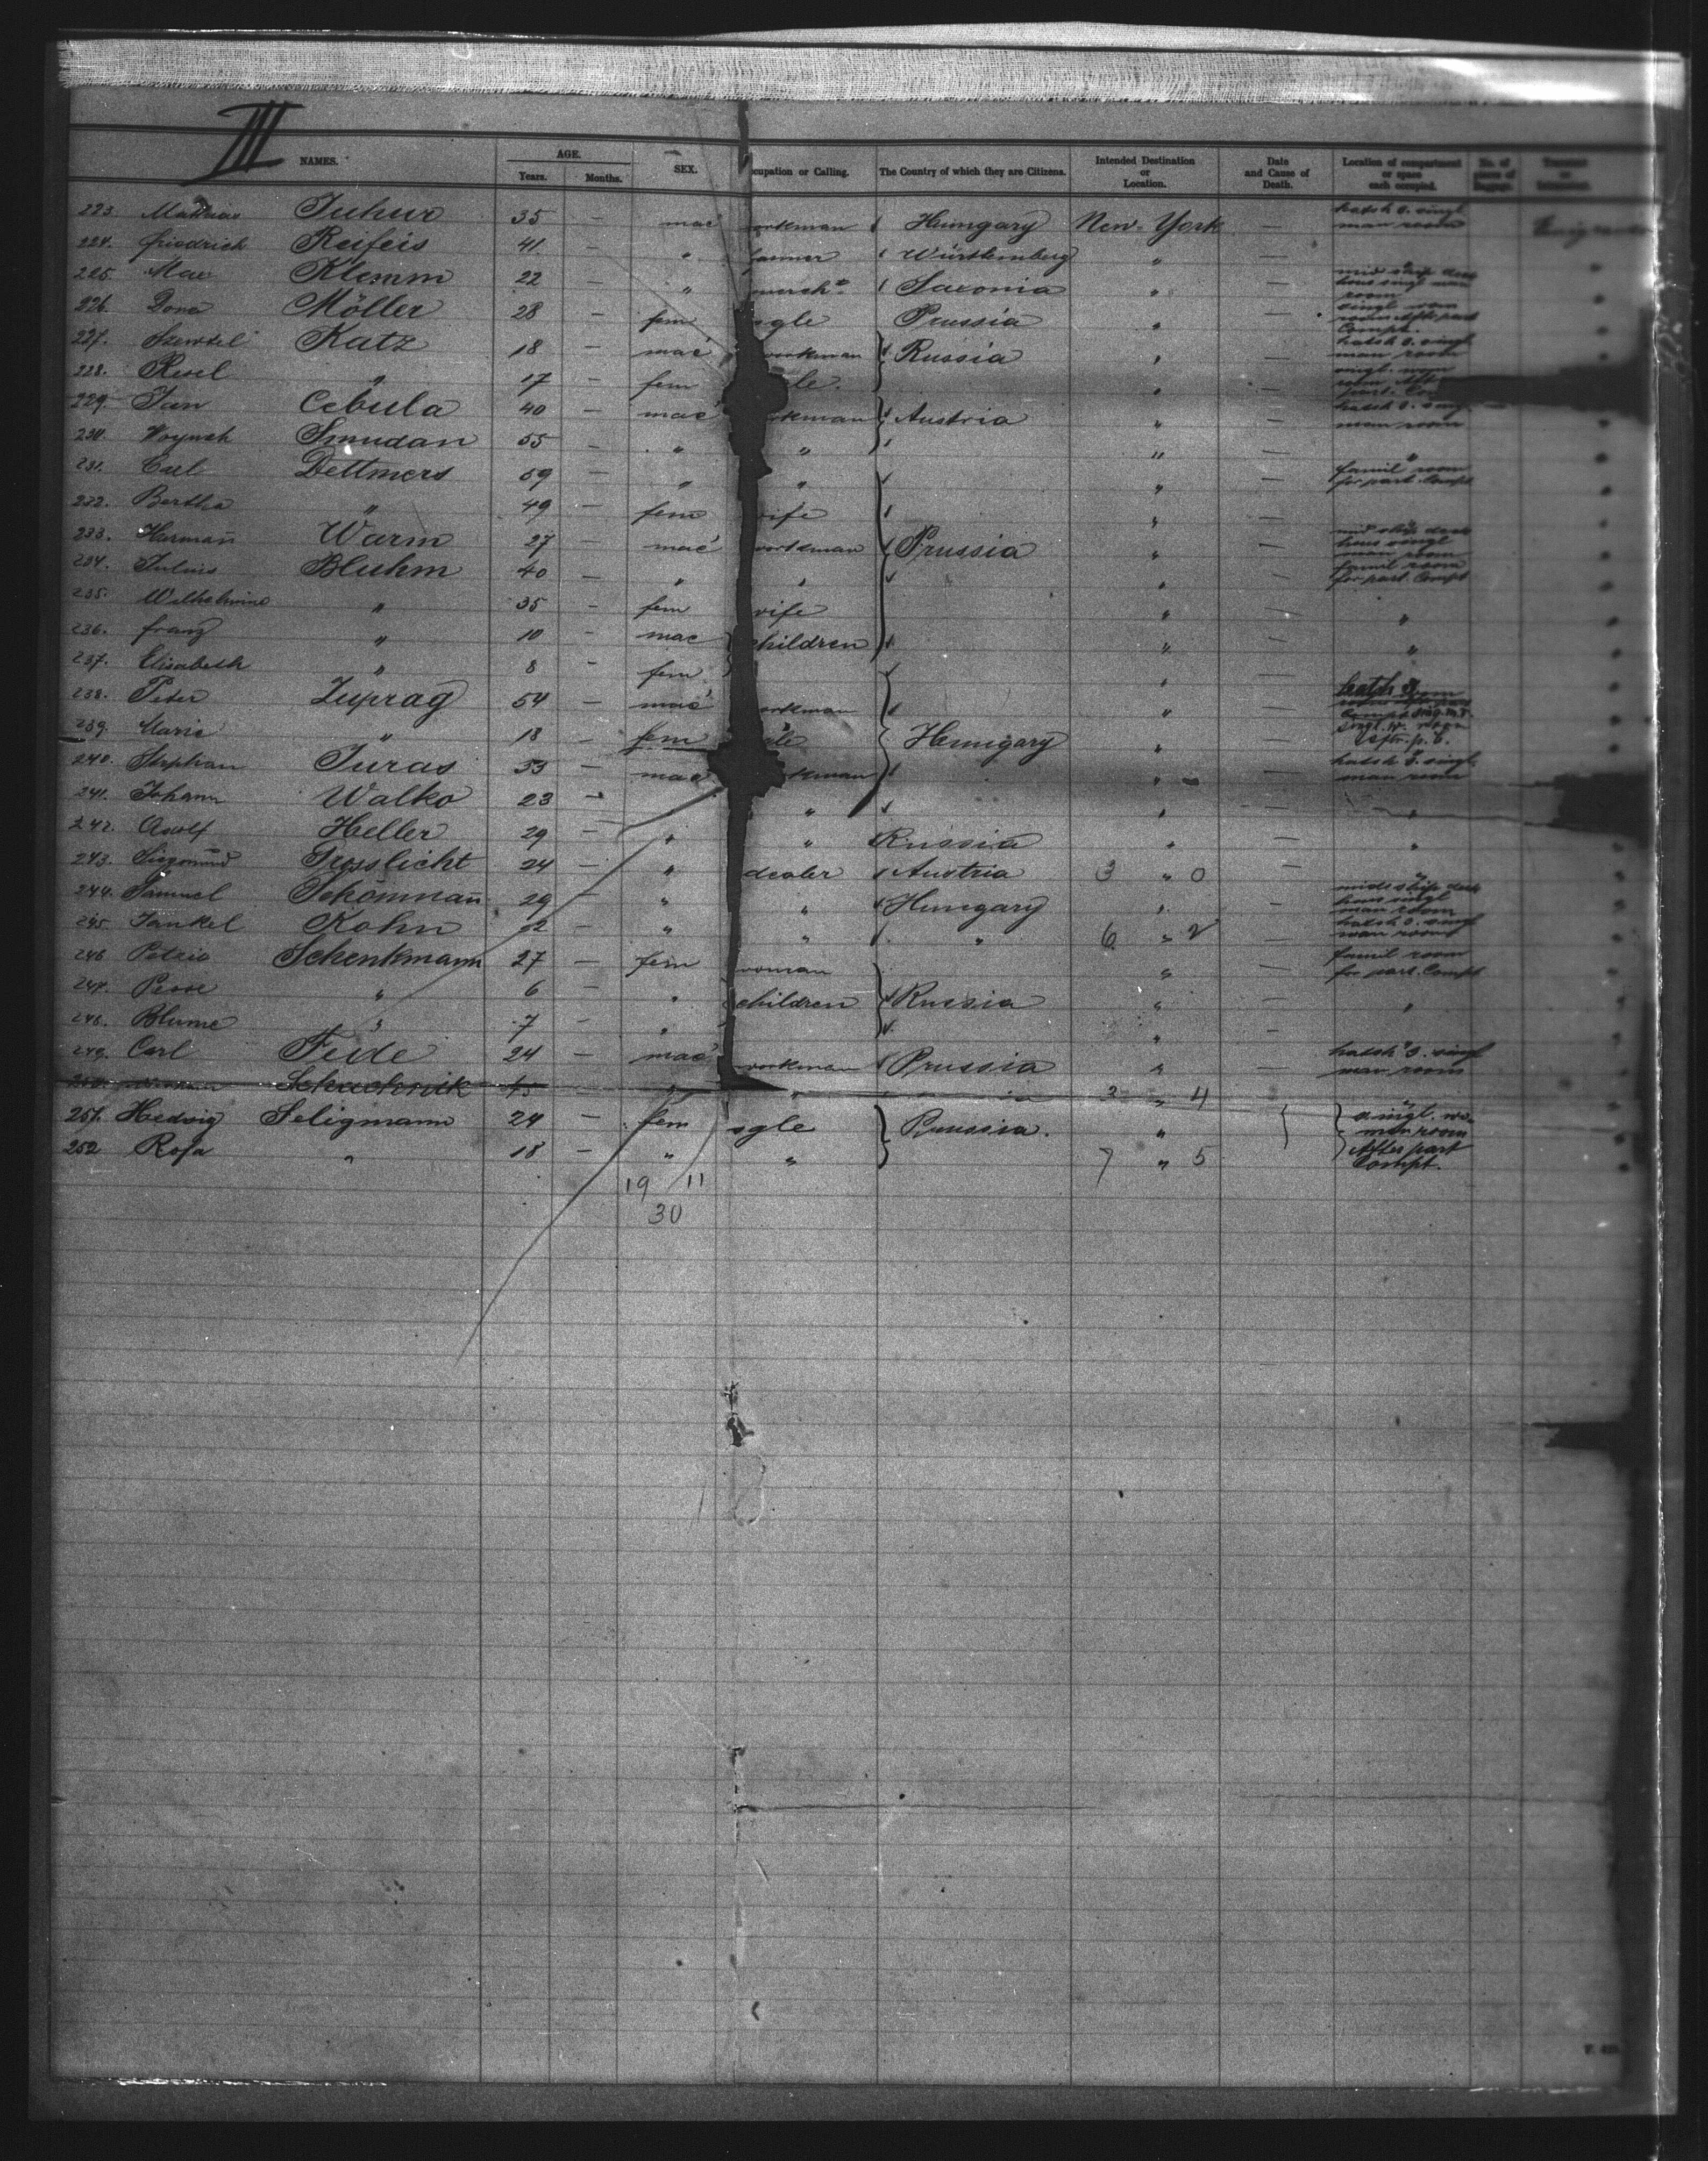 III
NAMES. AGE. Years. Months. SEX. cupation or Calling. The Country of which they are Citizens. Intended Destination or Location. Date and Cause of Death. Location of compartment or space each occupied. No. of pieces of baggage.
223. Mathias Juhur 35 — mac orkman Hungary New-York — hatsh 3. singl man room
224. friedrich Reifeis 41. — " farmer Württemberg " —
225. Max Klemm 22 — " merch Saxonia " — mid ship deck hous singl man room
226. Dora Möller 28 — fem sgle Prussia " — singl wom room After part Compt.
227. Katz 18 — mac workman Russia " — hatsh 3. singl man room
228. Resel " 17 — fem le. " — singl. wom room Aft part. Co
229. Jan Cebula 40 — mac rkman Austria " — hatsh 3. sing man room
230. Woyzech Smudan 55 — " " " — "
231. Carl Dettmers 59 — " " " — famil room for part. Compt
232. Bertha " 49 — fem wife " —
233. Hermañ Warm 27 — mac workman Prussia " — mid ship deck hous singl man room
234. Julius Bluhm 40 — " " " — famil room for part. Compt
235. Wilhelmine " 35 — fem wife " — "
236. franz " 10 — mac children " — "
237. Elisabeth " 8 — fem " —
238. Peter Zuprag 54 — mac orkman " —
239. Marie " 18 — fem le Hungary " —
240. Stephan Juras 33 — mac rkman " — hatsh 3. singl. man room
241. Johann Walko 23 — " " — "
242. Adolf Heller 29 — " " Russia " — "
243. Siegmund Trosslicht 24 — " dealer Austria 3 " 0 — "
244. Samuel Schömañ 29 — " " Hungary " midsship deck hous singl man room
245. Jankel Kohn 2 — " " " 6 " 2 — hatsh 3. singl man room
246 Petria Schenkmann 27 — fem woman " — famil room for part. Compt
247. " 6 — " children Russia " — "
248. Blume " 7 — " " —
249. Carl Feide 24 — mac workman Prussia " — hatsh 3. singl man room
250. Schachnik 45 — " " 3 " 4 "
251. Hedwig Seligmann 24 — fem sgle Prussia. " singl. wo- man room
252 Rosa " 18 — " " 7 " 5 After part Compt.
19 / 11
30